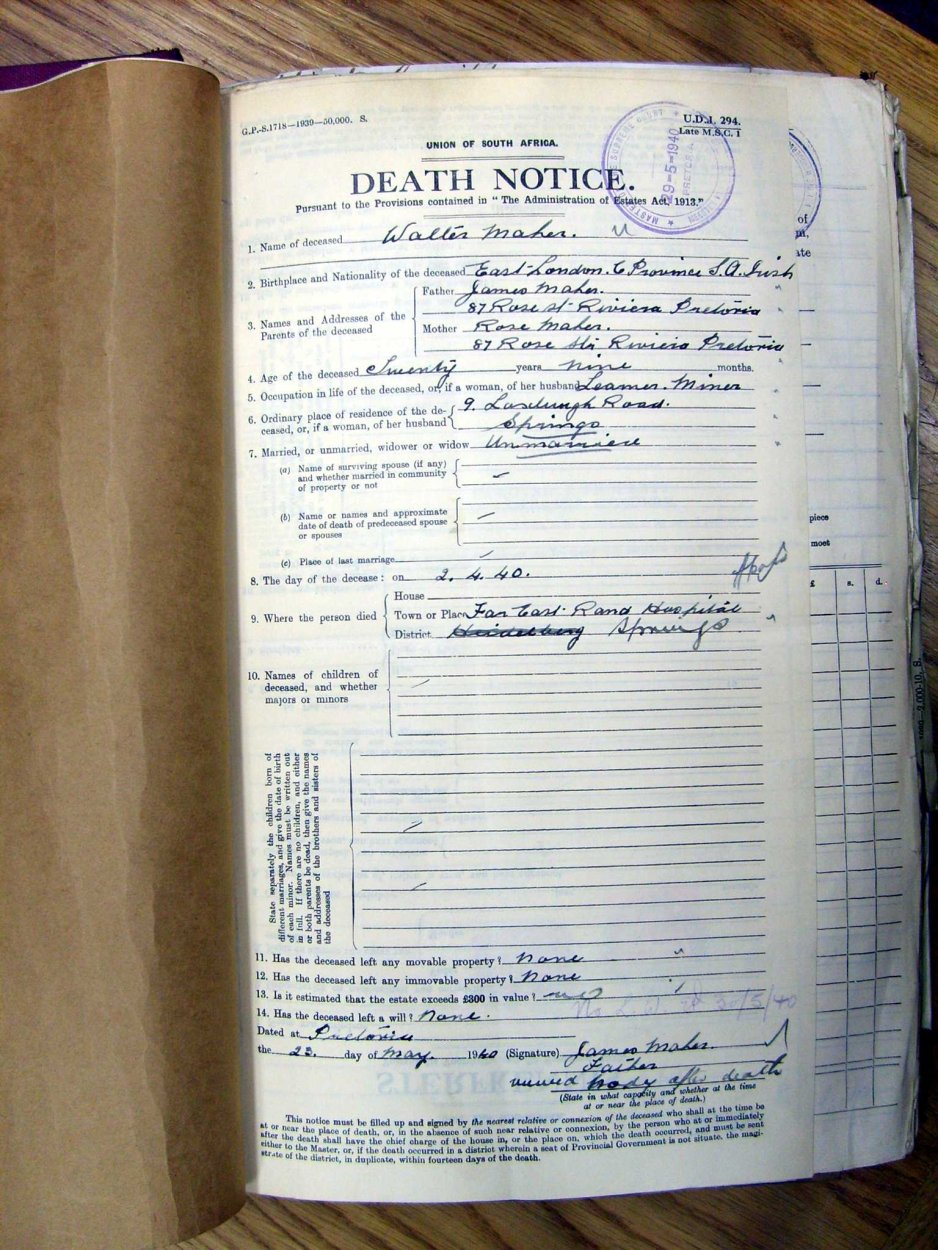 G.P.-S.1718—1939—50,000. S.
U.D.J. 294.
Late M.S.C. 1
UNION OF SOUTH AFRICA.
DEATH NOTICE.
29-5-1940
Pursuant to the Provisions contained in "The Administration of Estates Act, 1913."
1. Name of deceased Walter Maher.
2. Birthplace and Nationality of the deceased East-London. C Province S.A. Irish
3. Names and Addresses of the Parents of the deceased
Father James Maher.
87 Rose St Riviera Pretoria
Mother Rose Maher.
87 Rose Str Riviera Pretoria
4. Age of the deceased Twenty years nine months.
5. Occupation in life of the deceased, or, if a woman, of her husband Learner. Miner
6. Ordinary place of residence of the de-
ceased, or, if a woman, of her husband
9. Road.
Springs
7. Married, or unmarried, widower or widow Unmarried
(a) Name of surviving spouse (if any)
and whether married in community
of property or not
(b) Name or names and approximate
date of death of predeceased spouse
or spouses
(c) Place of last marriage
8. The day of the decease: on 2. 4. 40.
9. Where the person died
House
Town or Place Far East Rand Hospital
District Heidelberg Springs
10. Names of children of
deceased, and whether
majors or minors
State separately the children born of
different marriages, and give the date of birth
of each minor. Names must be written out
in full. If there are no children, and either
or both parents be dead, then give the names
and addresses of the brothers and sisters of
the deceased
11. Has the deceased left any movable property? none
12. Has the deceased left any immovable property? none
13. Is it estimated that the estate exceeds £300 in value? no
14. Has the deceased left a will? none.
30/5/40
Dated at Pretoria
the 23. day of May. 1940 (Signature) James Maher.
Father
viewed body after death
(State in what capacity and whether at the time
at or near the place of death.)
This notice must be filled up and signed by the nearest relative or connexion of the deceased who shall at the time be
at or near the place of death, or, in the absence of such near relative or connexion, by the person who at or immediately
after the death shall have the chief charge of the house in, or the place on, which the death occurred, and must be sent
either to the Master, or, if the death occurred in a district wherein a seat of Provincial Government is not situate, the magi-
strate of the district, in duplicate, within fourteen days of the death.
of
piece
moet
£ s. d.